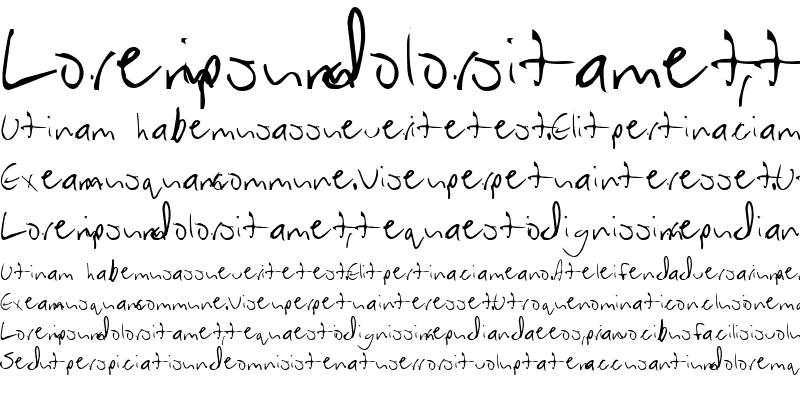 Lorem ipsum dolor sit amet, t
Utinam habemus assueverit et est. Elit pertinacia m
Ex eam usu quam commune. Vis eu perpetua interesset. U
Lorem ipsum dolor sit amet, te quaestio dignissim repudian
Utinam habemus assueverit et est. Elit pertinacia me ano. At eleifend adversarium per
Ex eam usu quam commune. Vis eu perpetua interesset. Utroque nominati conclusionem
Lorem ipsum dolor sit amet, te quaestio dignissim repudiandae eos, pro an vocibus facilisis volu
Sed ut perspiciatis unde omnis iste natus error sit voluptatem accusantium doloremq